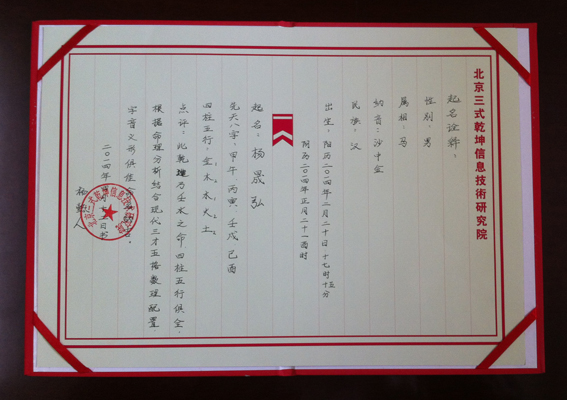 北京三式乾坤信息技術研究院
起名詮釋：
性别：男
属相：马
纳音：沙中金
民族：汉
出生：阳历二〇一四年二月二十日十七时十五分
阴历二〇一四年正月二十一酉时
起名：杨晟弘
先天八字：甲午 丙寅 壬戌 己酉
四柱五行：金 木 水 火 土
点评：此乾造乃壬水之命，四柱五行俱全，
根据命理分析结合现代三才五格数理配置，
字音义形俱佳
二〇一四年